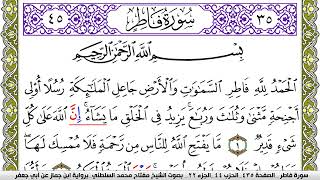 ٤٥ سُورَةُ فَاطِرٍ ٣٥
بِسْمِ اللَّهِ الرَّحْمَٰنِ الرَّحِيمِ
الْحَمْدُ لِلَّهِ فَاطِرِ السَّمَٰوَٰتِ وَالْأَرْضِ جَاعِلِ الْمَلَٰٓئِكَةِ رُسُلًا أُو۟لِي
أَجْنِحَةٍ مَّثْنَىٰ وَثُلَٰثَ وَرُبَٰعَ ۚ يَزِيدُ فِي الْخَلْقِ مَا يَشَآءُ ۚ إِنَّ اللَّهَ عَلَىٰ كُلِّ
شَيْءٍ قَدِيرٌ ١ مَّا يَفْتَحِ اللَّهُ لِلنَّاسِ مِن رَّحْمَةٍ فَلَا مُمْسِكَ لَهَا ۖ
سورة فاطر . الصفحة ٤٣٥. الحزب ٤٤ .الجزء ٢٢ . بصوت الشيخ مفتاح محمد السلطني .برواية ابن جماز عن أبي جعفر